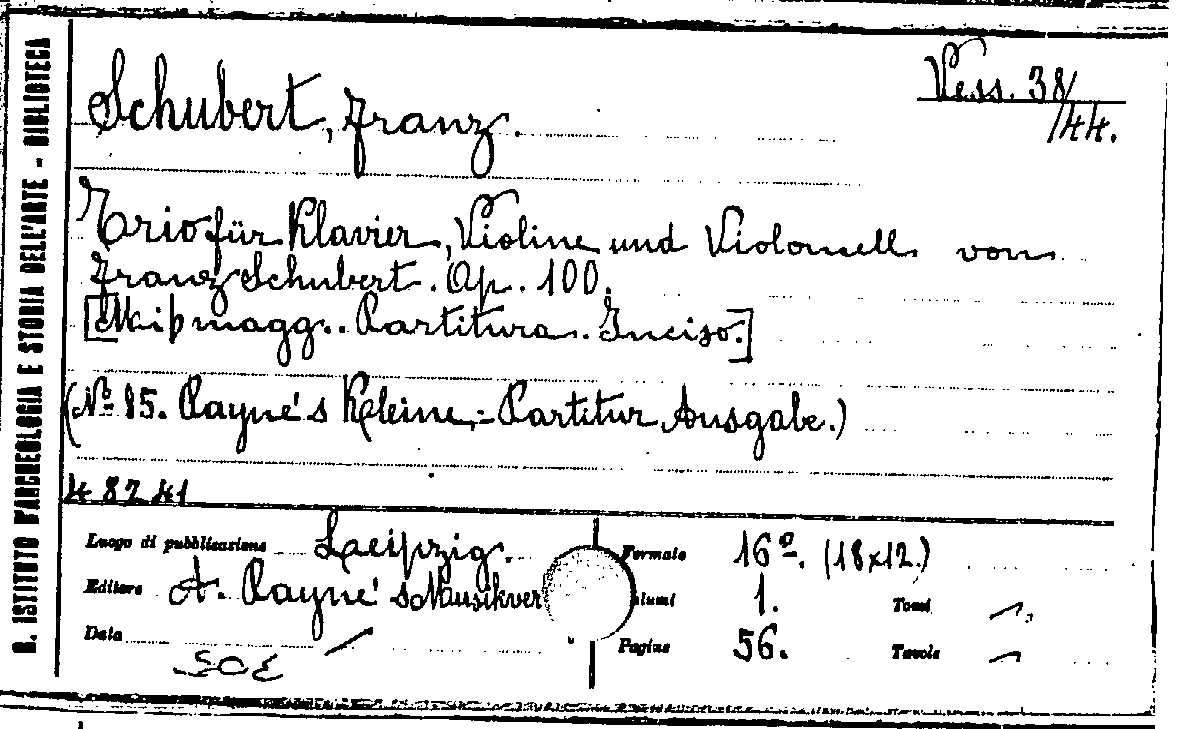 R. ISTITUTO D'ARCHEOLOGIA E STORIA DELL'ARTE - BIBLIOTECA
Vess. 38/
/44.
Schubert, Franz.
Trio für Klavier, Violine und Violoncell von
Franz Schubert. Op. 100.
[Mi♭ magg.. Partitura. Inciso.]
(Nº 85. Payne's Kleine-Partitur Ausgabe.)
48241
Luogo di pubblicazione Leipzig.
Formato 16º. (18x12.)
Editore A. Payne's Musikver
lumi 1.
Tomi
Data
Pagine 56.
Tavole